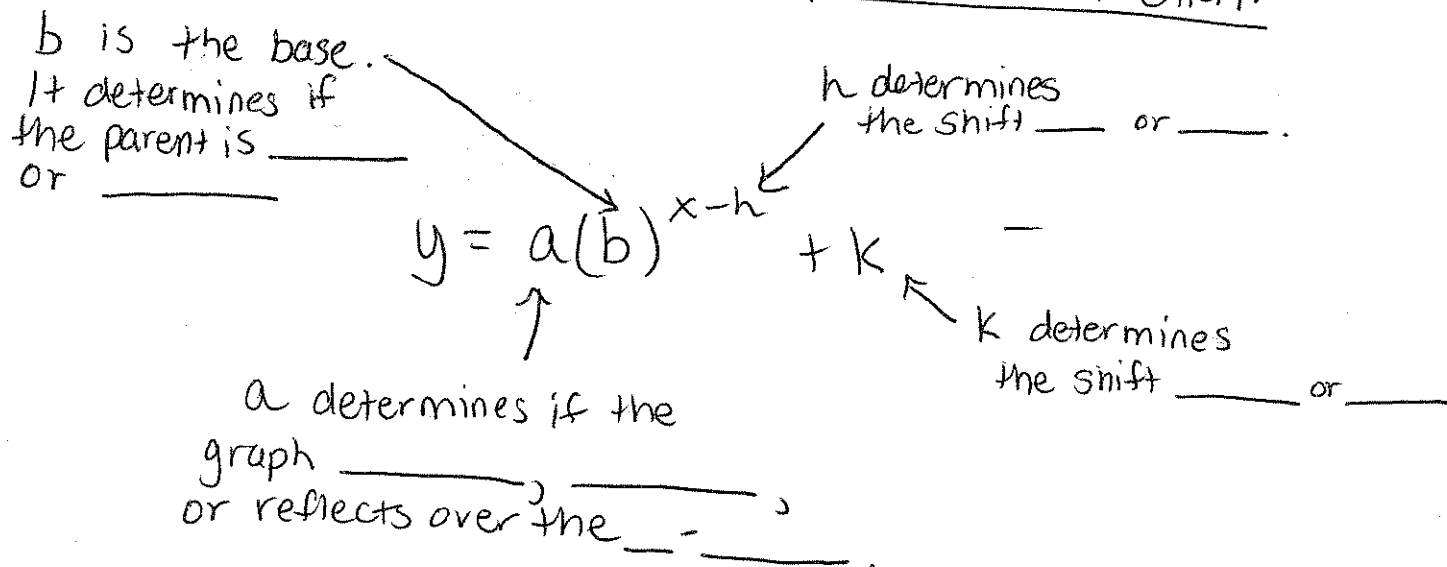 b is the base.
It determines if
the parent is ______
or ______
h determines
the shift ____ or ____.
y = a(b)^{x-h} + k
k determines
the shift ______ or ______
a determines if the
graph ______, ______,
or reflects over the __-______.